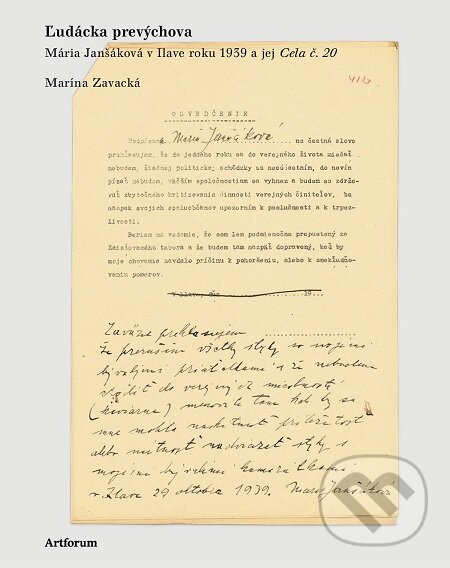 Ľudácka prevýchova
Mária Janšáková v Ilave roku 1939 a jej Cela č. 20
Marína Zavacká
OSVEDČENIE
Podpísaná Maria Janšáková na čestné slovo
prehlasujem, že do jedného roku sa do verejného života miešať
nebudem, žiadnej politickej schôdzky sa nesúčastním, do novín
písať nebudem, väčším spoločnostiam sa vyhnem a budem sa zdržo-
vať zbytočného kritizovania činnosti verejných činiteľov, ba
naopak svojich spoluobčanov upozorním k poslušnosti a k trpez-
livosti.
Beriem na vedomie, že som len podmienečne prepustený zo
Zaisťovacieho tábora a že budem tam nazpäť dopravený, keď by
moje chovanie zavdalo príčinu k pohoršeniu, alebo k znekludňo-
veniu pomerov.
V Ilave, dňa 19
Zaväzne prehlasujem
že preruším všetky styky so svojimi
bývalými priateľkami a že nebudem
chodiť do verejných miestností
(kaviarne) menovite tam kde by sa
mne mohla naskytnúť príležitosť
alebo nútnosť nadviazať styky s
mojimi bývalými kamarátkami
v Ilave 29 oktobra 1939. Maria Janšáková
Artforum
martinus